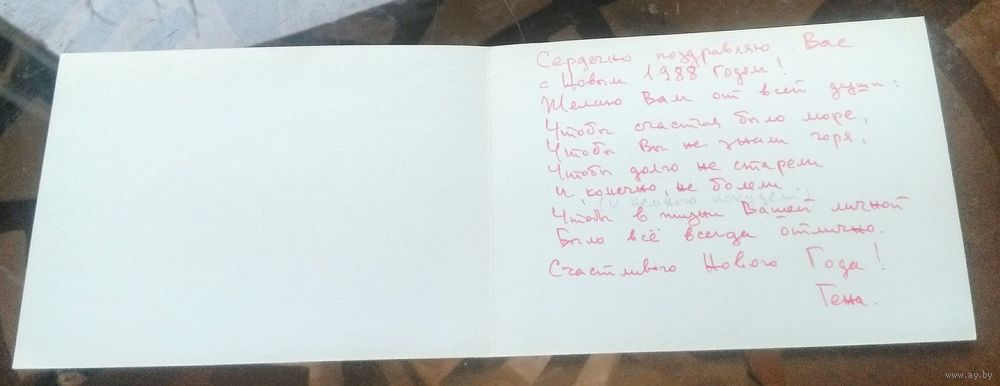 Сердечно поздравляю Вас
с Новым 1988 годом!
Желаю Вам от всей души:
Чтобы счастья было море,
Чтобы Вы не знали горя,
Чтобы долго не старели
и, конечно, не болели.
(и немного похудели)
Чтобы в жизни Вашей личной
Было всё всегда отлично.
Счастливого Нового Года!
Гена.
www.ay.by